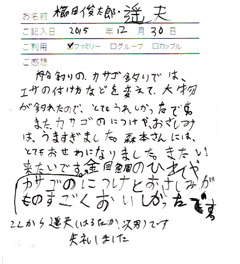 お名前 櫛田俊太郎・遥夫
ご記入日 2015 年 12 月 30 日
ご利用 ☑ファミリー □グループ □カップル
ご感想
釣りのカサゴ釣りでは、
エサの付けかたなどを変えて、大物
が釣れたので、とてもうれしかったです。
また、カサゴのにつけや、おさしみ
は、うますぎました。森本さんには、
とてもおせわになりました。またい
来たいです。
カサゴのにつけとおさしみが
ものすごくおいしかったです
ここから遥夫(はるたか、次男)です
失礼しました